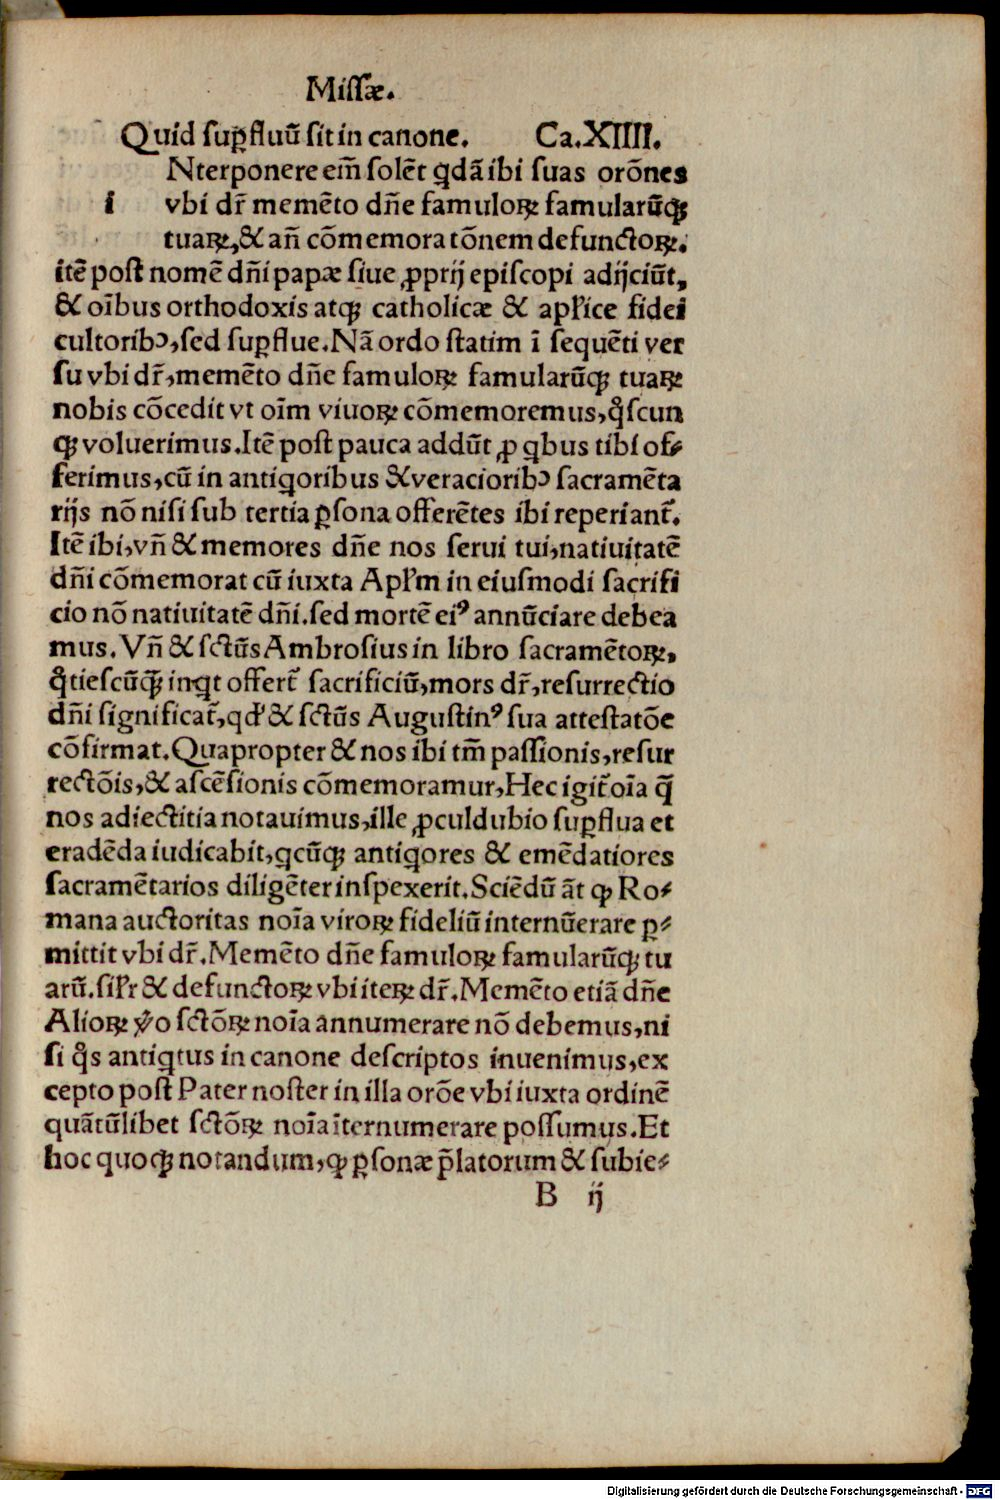 Missæ.
Quid suꝑfluū sit in canone. Ca.XIIII.
Nterponere em̄ solēt qdā ibi suas orōnes
i vbi dr̄ memēto dn̄e famuloꝝ famularūqꝫ
tuaꝝ,& an̄ cōmemoratōnem defunctoꝝ.
itē post nomē dn̄i papæ siue ꝓprij episcopi adijciūt,
& oībus orthodoxis atqꝫ catholicæ & apl'ice fidei
cultoribꝰ,sed suꝑflue.Nā ordo statim ī sequēti ver
su vbi dr̄,memēto dn̄e famuloꝝ famularūqꝫ tuaꝝ
nobis cōcedit vt oīm viuoꝝ cōmemoremus,qͦscun
qꝫ voluerimus.Itē post pauca addūt ꝓ qbus tibi of⸗
ferimus,cū in antiqoribus & veracioribꝰ sacramēta
rijs nō nisi sub tertia ꝑsona offerētes ibi reperiant̄.
Itē ibi,vn̄ & memores dn̄e nos serui tui,natiuitatē
dn̄i cōmemorat cū iuxta Apl'm in eiusmodi sacrifi
cio nō natiuitatē dn̄i.sed mortē eiꝰ annūciare debea
mus. Vn̄ & sctūs Ambrosius in libro sacramētoꝝ,
qͦtiescūqꝫ inqt offert̄ sacrificiū,mors dr̄,resurrectio
dn̄i significat̄,qd' & sctūs Augustinꝰ sua attestatōe
cōfirmat.Quapropter & nos ibi tm̄ passionis,resur
rectōis,& ascēsionis cōmemoramur,Hec igit̄ oīa q̄
nos adiectitia notauimus,ille ꝓculdubio suꝑflua et
eradēda iudicabit,qcūqꝫ antiqores & emēdatiores
sacramētarios diligēter inspexerit.Sciēdū āt ꝙ Ro⸗
mana auctoritas noīa viroꝝ fideliū internūerare ꝑ⸗
mittit vbi dr̄.Memēto dn̄e famuloꝝ famularūqꝫ tu
arū.sil'r & defunctoꝝ vbi iteꝝ dr̄.Memēto etiā dn̄e
Alioꝝ v̊o sctōꝝ noīa annumerare nō debemus,ni
si qͦs antiqtus in canone descriptos inuenimus,ex
cepto post Pater noster in illa orōe vbi iuxta ordinē
quātūlibet sctōꝝ noīa īternumerare possumus.Et
hoc quoqꝫ notandum,ꝙ ꝑsonæ p̄latorum & subie⸗
B ij
Digitalisierung gefördert durch die Deutsche Forschungsgemeinschaft - DFG